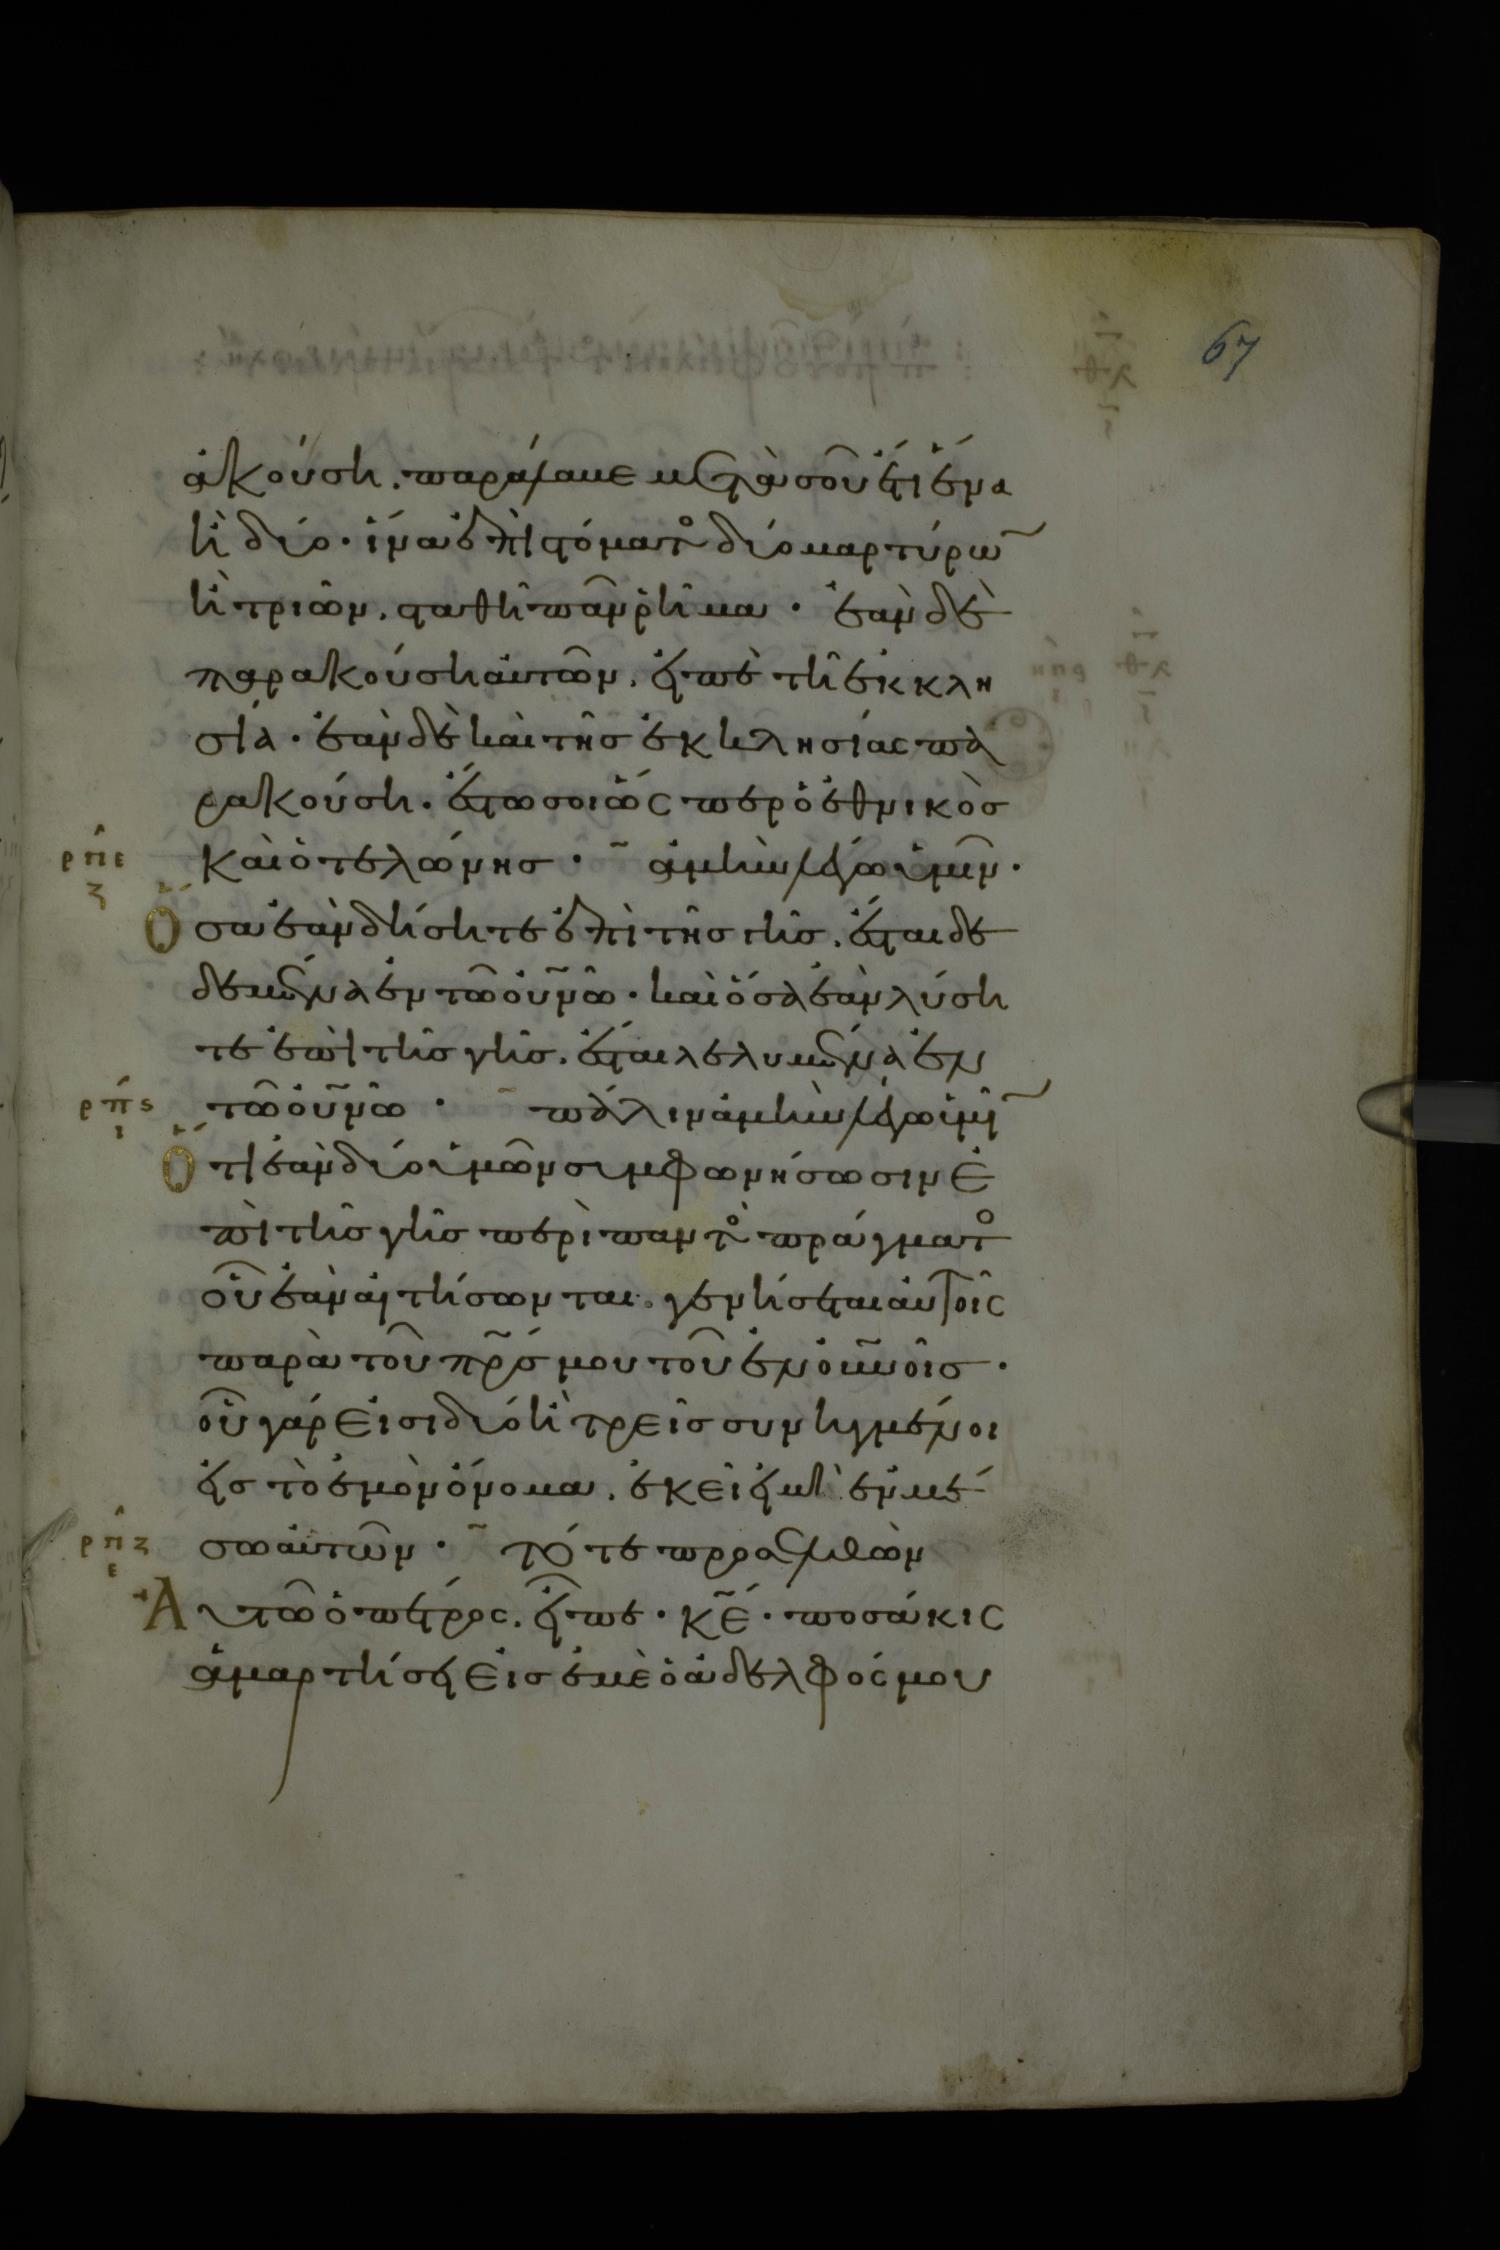 67
ἀκούση. παράλαβε μετὰ σοῦ ἔτι ἕνα
ἢ δύο· ἵνα ἐπὶ στόματος δύο μαρτύρων
ἢ τριῶν. σταθῆ πᾶν ῥῆμα· ἐὰν δὲ
παρακούση αὐτῶν. εἰπὲ τῆ ἐκκλη
σία· ἐὰν δὲ καὶ τῆς ἐκκλησίας πα
ρακούση. ἔστω σοι ὥσπερ ὁ ἐθνικὸς
ρπε καὶ ὁ τελώνης· ἀμὴν λέγω ὑμῖν·
ζ
Ὅσα ἐὰν δήσητε ἐπὶ τῆς γῆς. ἔσται δε
δεμένα ἐν τῶ οὐνῶ· καὶ ὅσα ἐὰν λύση
τε ἐπὶ τῆς γῆς. ἔσται λελυμένα ἐν
ρπς τῶ οὐνῶ· πάλιν ἀμὴν λέγω ὑμῖν
ι
Ὅτι ἐὰν δύο ὑμῶν συμφωνήσωσιν ἐ
πὶ τῆς γῆς περὶ παντὸς πράγματος
οὗ ἐὰν αἰτήσωνται. γενήσεται αὐτοῖς
παρὰ τοῦ πρς μου τοῦ ἐν οὐνοῖς·
οὗ γάρ εἰσι δύο ἢ τρεῖς συνηγμένοι
εἰς τὸ ἐμὸν ὄνομα. ἐκεῖ εἰμὶ ἐν μέ
ρπζ σω αὐτῶν· τότε προσελθὼν
ε
Αὐτῶ ὁ πέτρος. εἶπε· κε· ποσάκις
ἁμαρτήσει εἰς ἐμὲ ὁ ἀδελφός μου